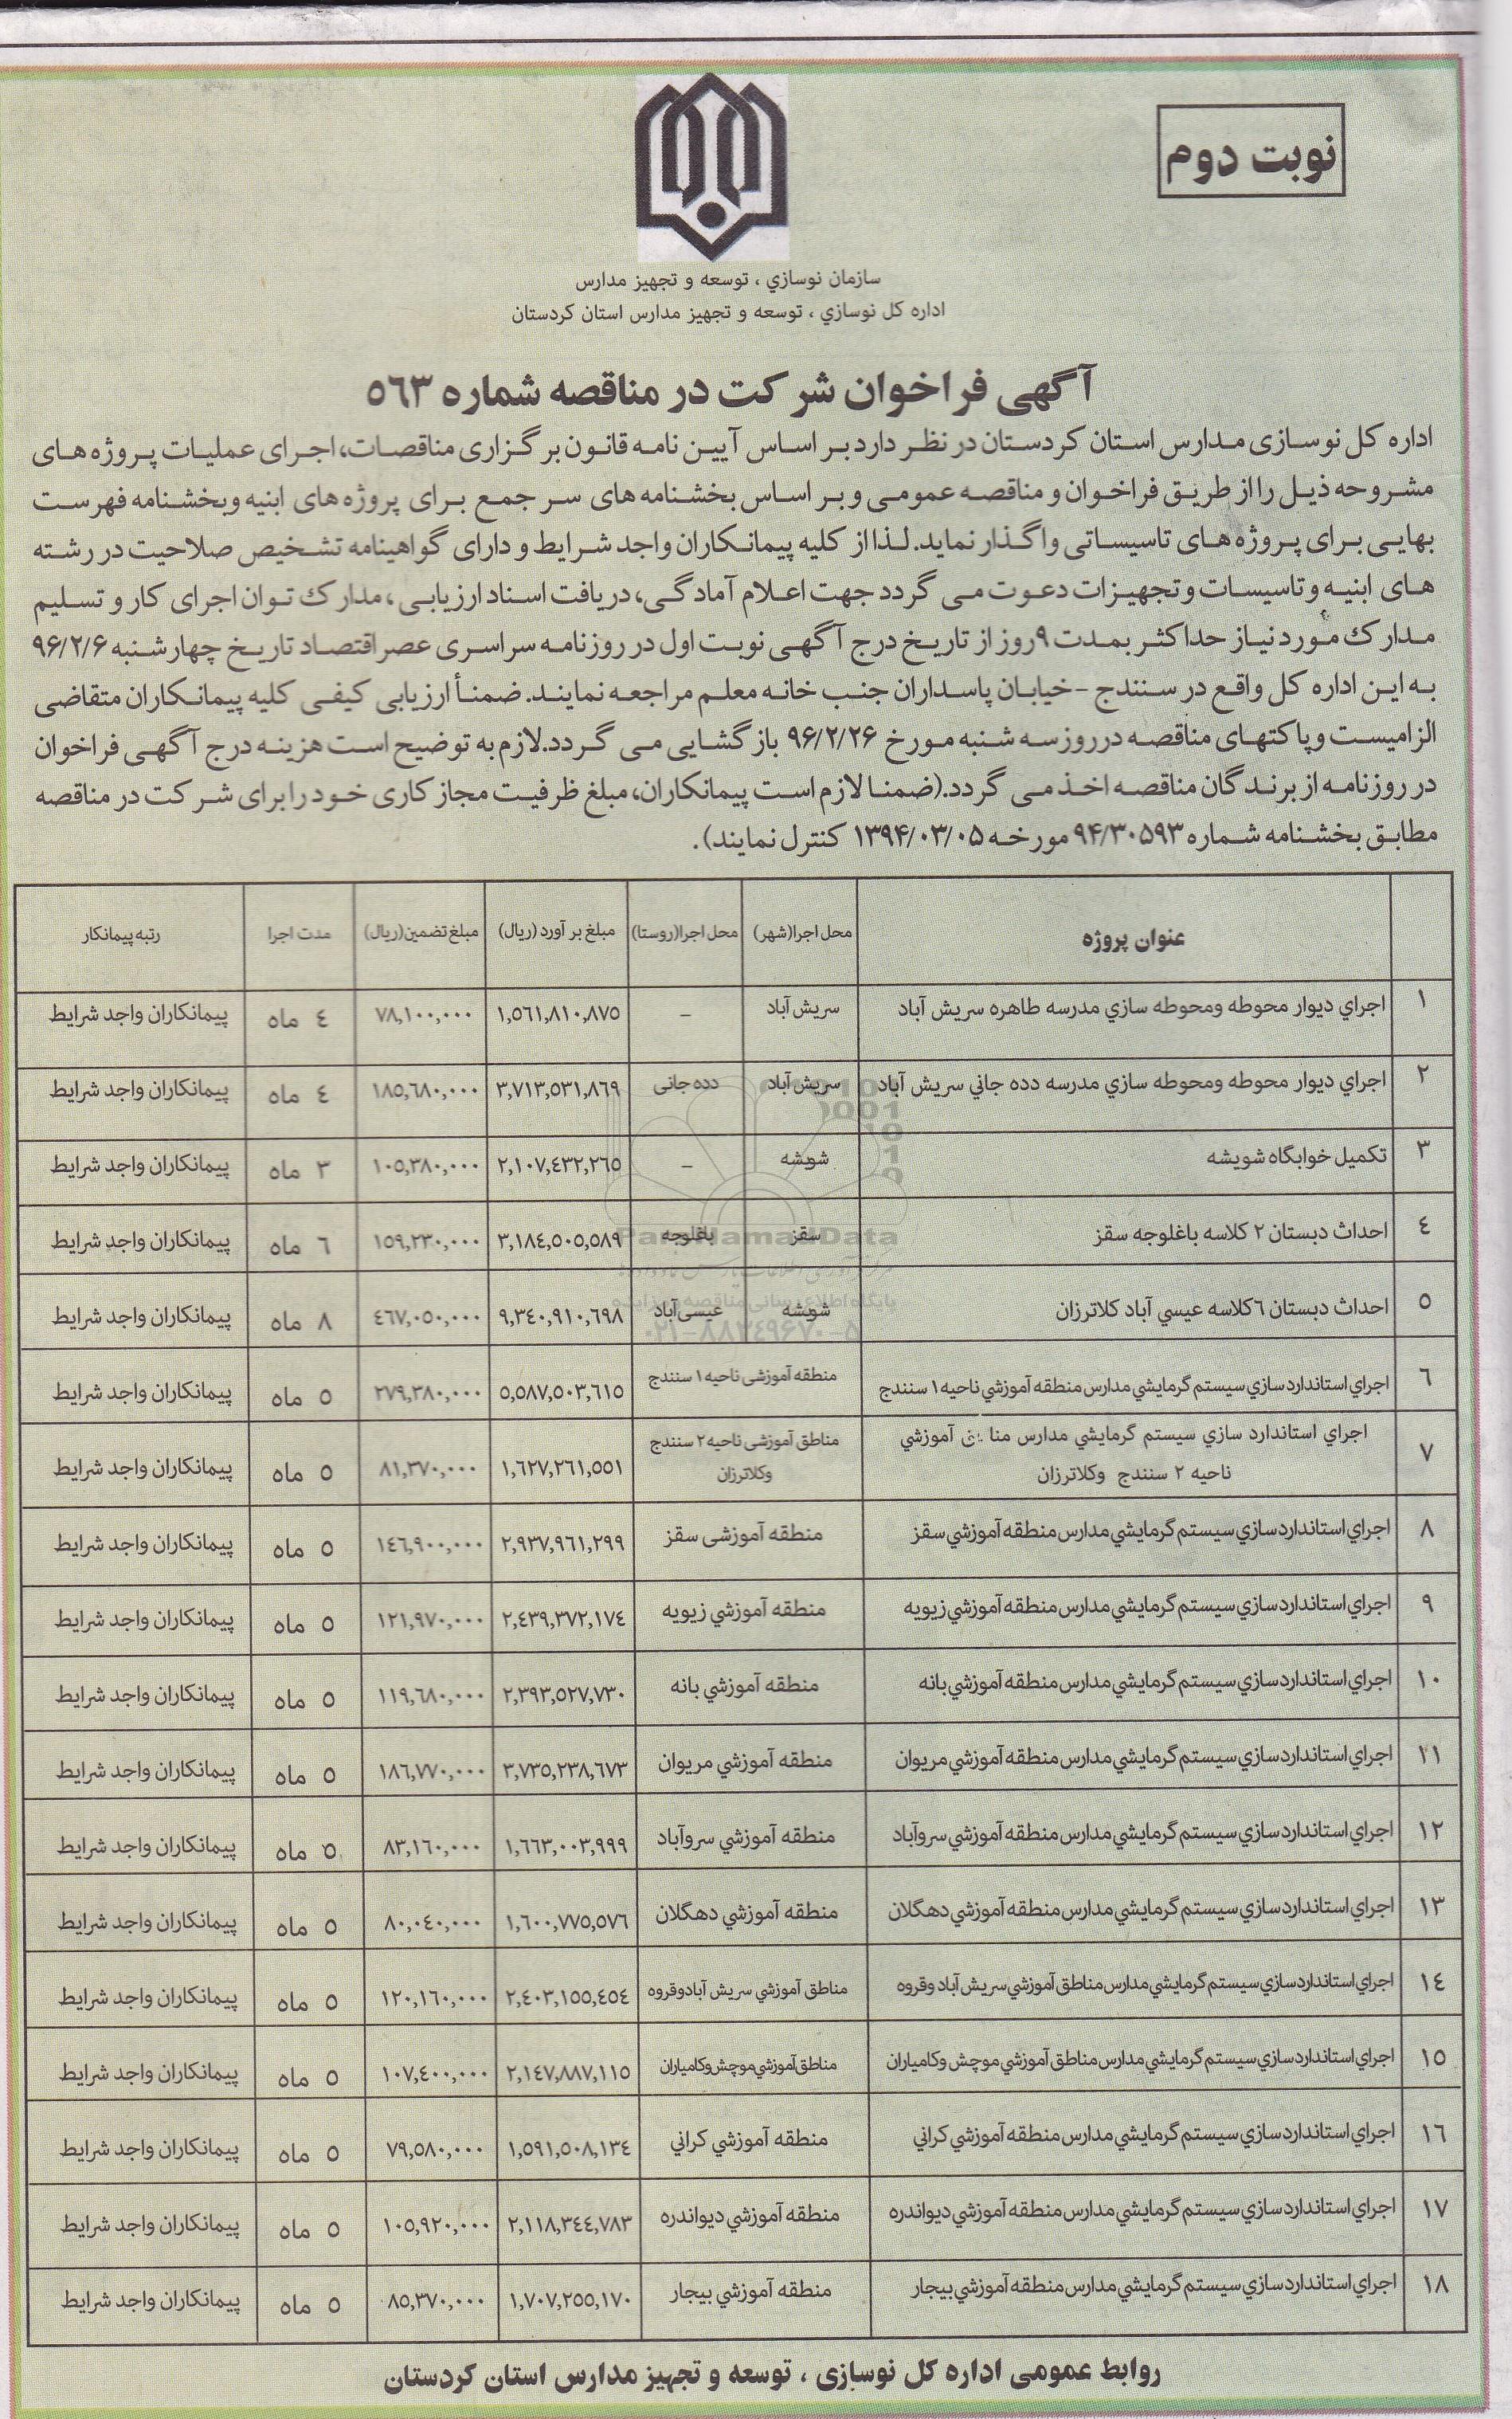 نوبت دوم
سازمان نوسازي ، توسعه و تجهيز مدارس
اداره كل نوسازي ، توسعه و تجهيز مدارس استان كردستان
آگهی فراخوان شرکت در مناقصه شماره ٥٦٣
اداره کل نوسازی مدارس استان کردستان در نظر دارد بر اساس آیین نامه قانون برگزاری مناقصات، اجرای عملیات پروژه های
مشروحه ذیل را از طریق فراخوان و مناقصه عمومی و بر اساس بخشنامه های سر جمع برای پروژه های ابنیه و بخشنامه فهرست
بهایی برای پروژه های تاسیساتی واگذار نماید. لذا از کلیه پیمانکاران واجد شرایط و دارای گواهینامه تشخیص صلاحیت در رشته
های ابنیه و تاسیسات و تجهیزات دعوت می گردد جهت اعلام آمادگی، دریافت اسناد ارزیابی، مدارک توان اجرای کار و تسلیم
مدارک مورد نیاز حداکثر بمدت ۹ روز از تاریخ درج آگهی نوبت اول در روزنامه سراسری عصر اقتصاد تاریخ چهارشنبه ۹۶/۲/۶
به این اداره کل واقع در سنندج - خیابان پاسداران جنب خانه معلم مراجعه نمایند. ضمنأ ارزیابی کیفی کلیه پیمانکاران متقاضی
الزامیست و پاکتهای مناقصه در روز سه شنبه مورخ ۹۶/۲/۲۶ باز گشایی می گردد. لازم به توضیح است هزینه درج آگهی فراخوان
در روزنامه از برندگان مناقصه اخذ می گردد. (ضمنا لازم است پیمانکاران، مبلغ ظرفیت مجاز کاری خود را برای شرکت در مناقصه
مطابق بخشنامه شماره ۹۴/۳۰۵۹۳ مورخه ۱۳۹۴/۰۳/۰۵ کنترل نمایند).
عنوان پروژه محل اجرا(شهر) محل اجرا(روستا) مبلغ برآورد (ریال) مبلغ تضمین(ریال) مدت اجرا رتبه پیمانکار
١ اجراي ديوار محوطه ومحوطه سازي مدرسه طاهره سريش آباد سریش آباد – ١,٥٦١,٨١٠,٨٧٥ ٧٨,١٠٠,٠٠٠ ٤ ماه پیمانکاران واجد شرایط
٢ اجراي ديوار محوطه ومحوطه سازي مدرسه دده جاني سريش آباد سریش آباد دده جانی ٣,٧١٣,٥٣١,٨٦٩ ١٨٥,٦٨٠,٠٠٠ ٤ ماه پیمانکاران واجد شرایط
٣ تكميل خوابگاه شويشه شویشه – ٢,١٠٧,٤٣٢,٢٦٥ ١٠٥,٣٨٠,٠٠٠ ٣ ماه پیمانکاران واجد شرایط
٤ احداث دبستان ٢ كلاسه باغلوجه سقز سقز باغلوجه ٣,١٨٤,٥٠٥,٥٨٩ ١٥٩,٢٣٠,٠٠٠ ٦ ماه پیمانکاران واجد شرایط
٥ احداث دبستان ٦ كلاسه عيسي آباد كلاترزان شویشه عیسی آباد ٩,٣٤٠,٩١٠,٦٩٨ ٤٦٧,٠٥٠,٠٠٠ ٨ ماه پیمانکاران واجد شرایط
٦ اجراي استانداردسازي سيستم گرمايشي مدارس منطقه آموزشي ناحيه ١ سنندج منطقه آموزشی ناحیه ١ سنندج ٥,٥٨٧,٥٠٣,٦١٥ ٢٧٩,٣٨٠,٠٠٠ ٥ ماه پیمانکاران واجد شرایط
٧ اجراي استاندارد سازي سيستم گرمايشي مدارس مناطق آموزشي مناطق آموزشی ناحیه ٢ سنندج
ناحيه ٢ سنندج وكلاترزان وکلاترزان ١,٦٢٧,٢٦١,٥٥١ ٨١,٣٧٠,٠٠٠ ٥ ماه پیمانکاران واجد شرایط
٨ اجراي استانداردسازي سيستم گرمايشي مدارس منطقه آموزشي سقز منطقه آموزشی سقز ٢,٩٣٧,٩٦١,٢٩٩ ١٤٦,٩٠٠,٠٠٠ ٥ ماه پیمانکاران واجد شرایط
٩ اجراي استانداردسازي سيستم گرمايشي مدارس منطقه آموزشي زيويه منطقه آموزشي زيويه ٢,٤٣٩,٣٧٢,١٧٤ ١٢١,٩٧٠,٠٠٠ ٥ ماه پیمانکاران واجد شرایط
١٠ اجراي استانداردسازي سيستم گرمايشي مدارس منطقه آموزشي بانه منطقه آموزشي بانه ٢,٣٩٣,٥٢٧,٧٣٠ ١١٩,٦٨٠,٠٠٠ ٥ ماه پیمانکاران واجد شرایط
١١ اجراي استانداردسازي سيستم گرمايشي مدارس منطقه آموزشي مريوان منطقه آموزشي مريوان ٣,٧٣٥,٢٣٨,٦٧٣ ١٨٦,٧٧٠,٠٠٠ ٥ ماه پیمانکاران واجد شرایط
١٢ اجراي استانداردسازي سيستم گرمايشي مدارس منطقه آموزشي سروآباد منطقه آموزشي سروآباد ١,٦٦٣,٠٠٣,٩٩٩ ٨٣,١٦٠,٠٠٠ ٥ ماه پیمانکاران واجد شرایط
١٣ اجراي استانداردسازي سيستم گرمايشي مدارس منطقه آموزشي دهگلان منطقه آموزشي دهگلان ١,٦٠٠,٧٧٥,٥٧٦ ٨٠,٠٤٠,٠٠٠ ٥ ماه پیمانکاران واجد شرایط
١٤ اجراي استانداردسازي سيستم گرمايشي مدارس مناطق آموزشي سريش آباد وقروه مناطق آموزشي سريش آبادوقروه ٢,٤٠٣,١٥٥,٤٥٤ ١٢٠,١٦٠,٠٠٠ ٥ ماه پیمانکاران واجد شرایط
١٥ اجراي استانداردسازي سيستم گرمايشي مدارس مناطق آموزشي موچش وكامياران مناطق آموزشي موچش وكامياران ٢,١٤٧,٨٨٧,١١٥ ١٠٧,٤٠٠,٠٠٠ ٥ ماه پیمانکاران واجد شرایط
١٦ اجراي استانداردسازي سيستم گرمايشي مدارس منطقه آموزشي كراني منطقه آموزشي كراني ١,٥٩١,٥٠٨,١٣٤ ٧٩,٥٨٠,٠٠٠ ٥ ماه پیمانکاران واجد شرایط
١٧ اجراي استانداردسازي سيستم گرمايشي مدارس منطقه آموزشي ديواندره منطقه آموزشي ديواندره ٢,١١٨,٣٤٤,٧٨٣ ١٠٥,٩٢٠,٠٠٠ ٥ ماه پیمانکاران واجد شرایط
١٨ اجراي استانداردسازي سيستم گرمايشي مدارس منطقه آموزشي بيجار منطقه آموزشي بيجار ١,٧٠٧,٢٥٥,١٧٠ ٨٥,٣٧٠,٠٠٠ ٥ ماه پیمانکاران واجد شرایط
روابط عمومی اداره کل نوسازی ، توسعه و تجهیز مدارس استان کردستان